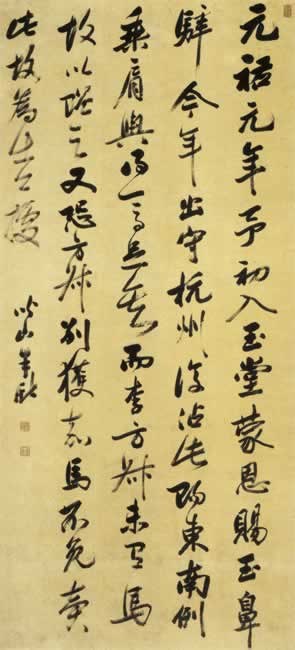 元祐元年予初入玉堂蒙恩賜玉鼻
騂今年出守杭州復沾此賜東南例
乘肩輿得一馬足矣而李方叔未有馬
故以贈之又恐方叔別獲嘉馬不免賣
此故為出公據
山